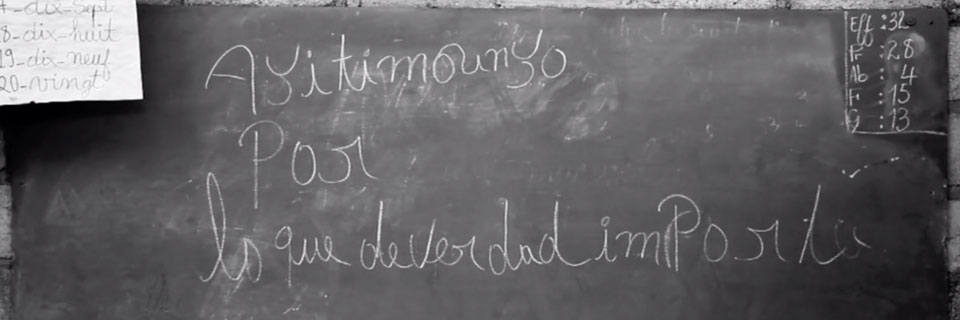 17-dix-sept
18-dix-huit
19-dix-neuf
20-vingt
Ayitimounyo
Por
lo que deverdad imPorta
Eff : 32
Pr : 28
Ab : 4
F : 15
G : 13